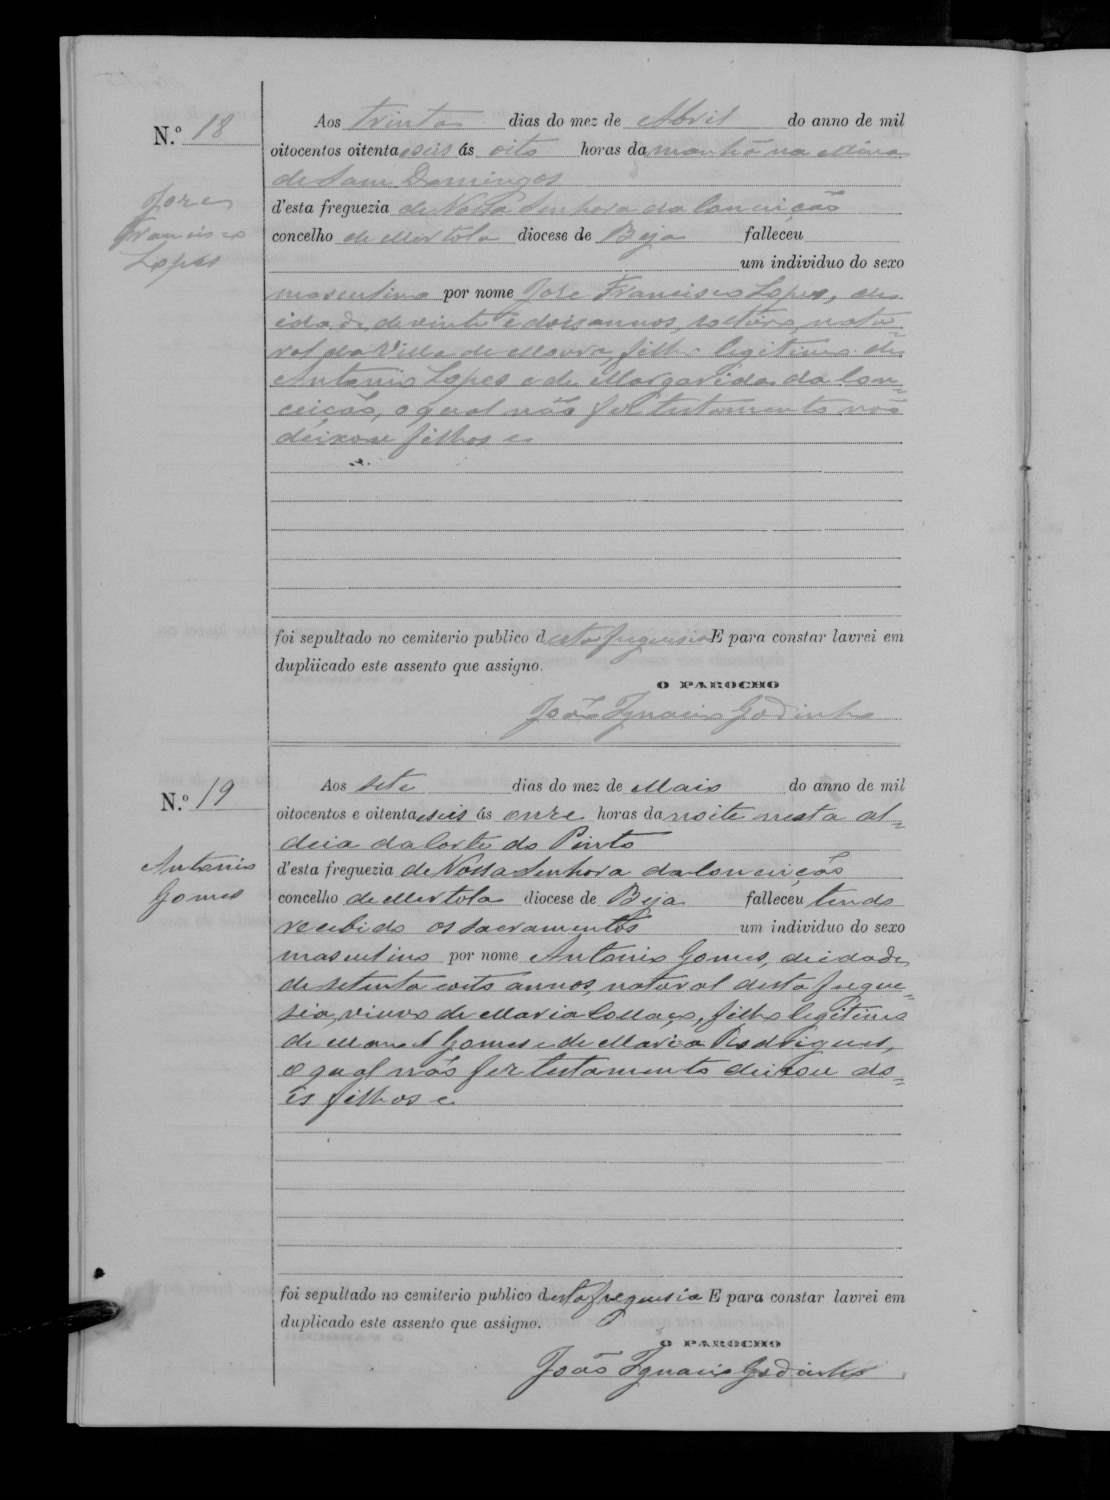 N.º 18
Jose
Francisco
Lopes
Aos trinta dias do mez de Abril do anno de mil
oitocentos oitenta e seis ás oito horas da manhã na Mina
de Sam Domingos
d'esta freguezia de Nossa Senhora da Conceição
concelho de Mertola diocese de Beja falleceu
um individuo do sexo
masculino por nome Jose Francisco Lopes, de
idade de vinte e dois annos, solteiro, natu=
ral da Villa de Moura, filho legitimo de
Antonio Lopes e de Margarida da Con=
ceição, o qual não fez testamento não
deixou filhos e
foi sepultado no cemiterio publico desta freguesia E para constar lavrei em
dupliicado este assento que assigno.
O PAROCHO
João Ignacio Godinho
N.º 19
Antonio
Gomes
Aos sete dias do mez de Maio do anno de mil
oitocentos e oitenta e seis ás onze horas da noite nesta al=
deia da Corte do Pinto
d'esta freguezia de Nossa Senhora da Conceição
concelho de Mertola diocese de Beja falleceu tendo
recebido os sacramentos um individuo do sexo
masculino por nome Antonio Gomes, de idade
de setenta e oito annos, natural desta fregue=
sia, viuvo de Maria Collaço, filho legitimo
de Manoel Gomes e de Maria Rodrigues,
o qual não fez testamento deixou do=
is filhos e
foi sepultado no cemiterio publico desta freguesia E para constar lavrei em
duplicado este assento que assigno.
O PAROCHO
João Ignacio Godinho